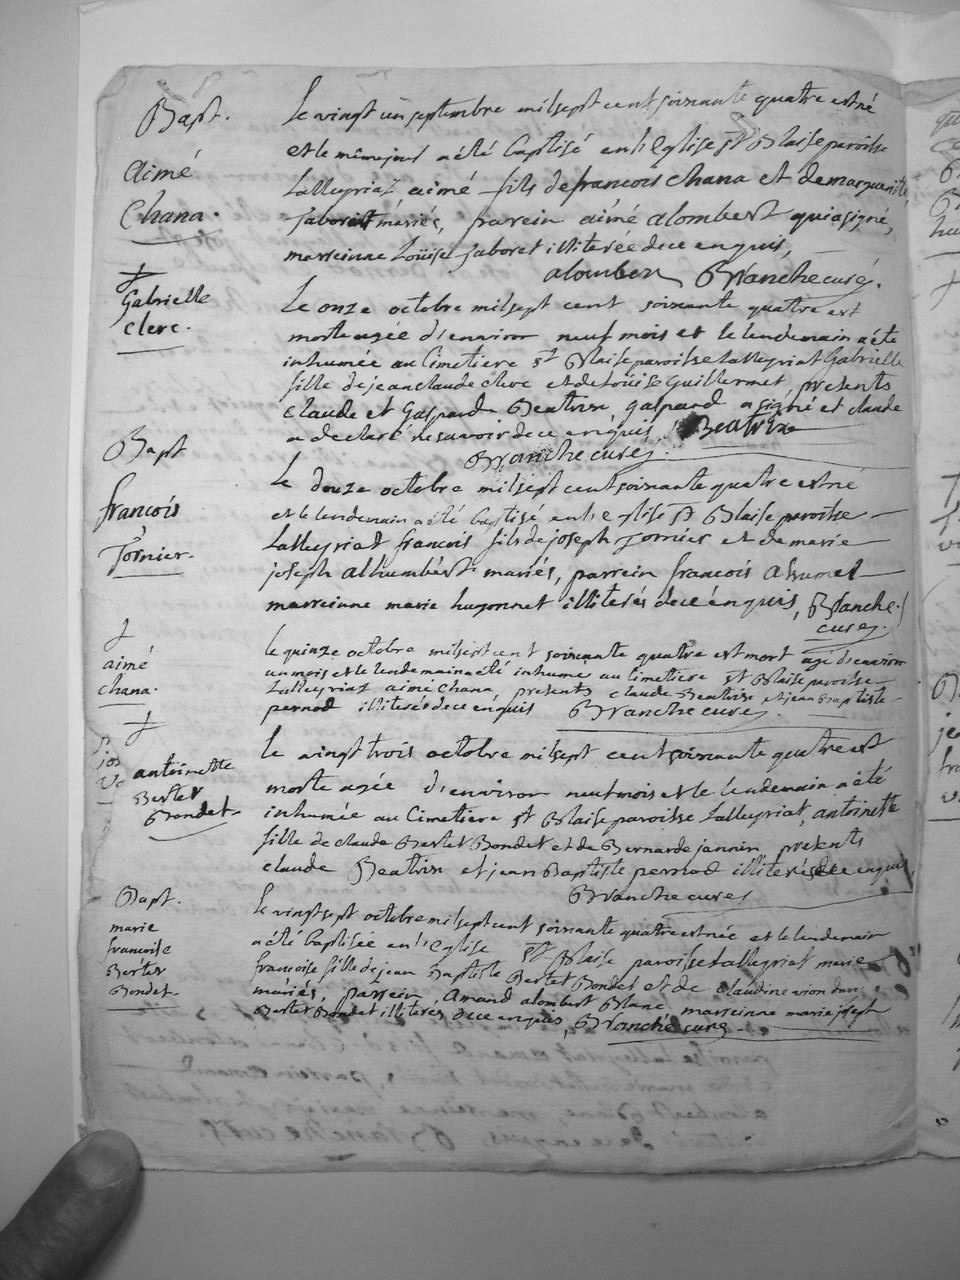 Bapt.
Aimé
Chana.
Le vingt un septembre mil sept cent soixante quatre est né
et le même jour a été baptisé en l'Eglise St Blaise paroisse
Lalleyriat aimé fils de francois Chana et de marguerite
Jaboret mariés, parrein aimé alombert qui a signé,
marreinne Loüise Jaboret illiterée de ce enquis,
alombert Blanche curé.
Gabrielle
Clerc.
Le onze octobre mil sept cent soixante quatre est
morte agée d'environ neuf mois et le lendemain a été
inhumée au Cimetiere St Blaise paroisse Lalleyriat Gabrielle
fille de jean claude clerc et de Loüise Guillermet, presents
Claude et Gaspard Beatrix, gaspard a signé et claude
a declaré ne savoir de ce enquis. Beatrix
Blanche curé.
Bapt
françois
Tornier.
Le douze octobre mil sept cent soixante quatre est né
et le lendemain a été baptisé en l'eglise St Blaise paroisse
Lalleyriat francois fils de joseph Tornier et de marie
joseph alhumbert mariés, parrein francois
marreinne marie hugonnet illiterés de ce énquis, Blanche
curé.
aimé
chana.
Le quinze octobre mil sept cent soixante quatre est mort agé d'environ
un mois et le lendemain a été inhumé au Cimetiere St Blaise paroisse
Lalleyriat aimé Chana, presents claude Beatrix et jean Baptiste
pernod illiterés de ce enquis Blanche curé.
antoinette
Bertet
Bondet.
Le vingt trois octobre mil sept cent soixante quatre est
morte agée d'environ neuf mois et le lendemain a été
inhumée au Cimetiere St Blaise paroisse Lalleyriat, antoinette
fille de claude Bertet Bondet et de Bernarde jannin, presents
claude Beatrix et jean Baptiste pernod illiterés de ce enquis
Blanche curé
Bapt.
marie
francoise
Bertet
Bondet.
Le vingt sept octobre mil sept cent soixante quatre est née et le lendemain
a été baptisée en l'Eglise St Blaise paroisse Lalleyriat marie
francoise fille de jean Baptiste Bertet Bondet et de Claudine
mariés, parrein, Amand alombert Blanc, marreinne marie joseph
Bertet Bondet illiteres de ce enquis, Blanche curé